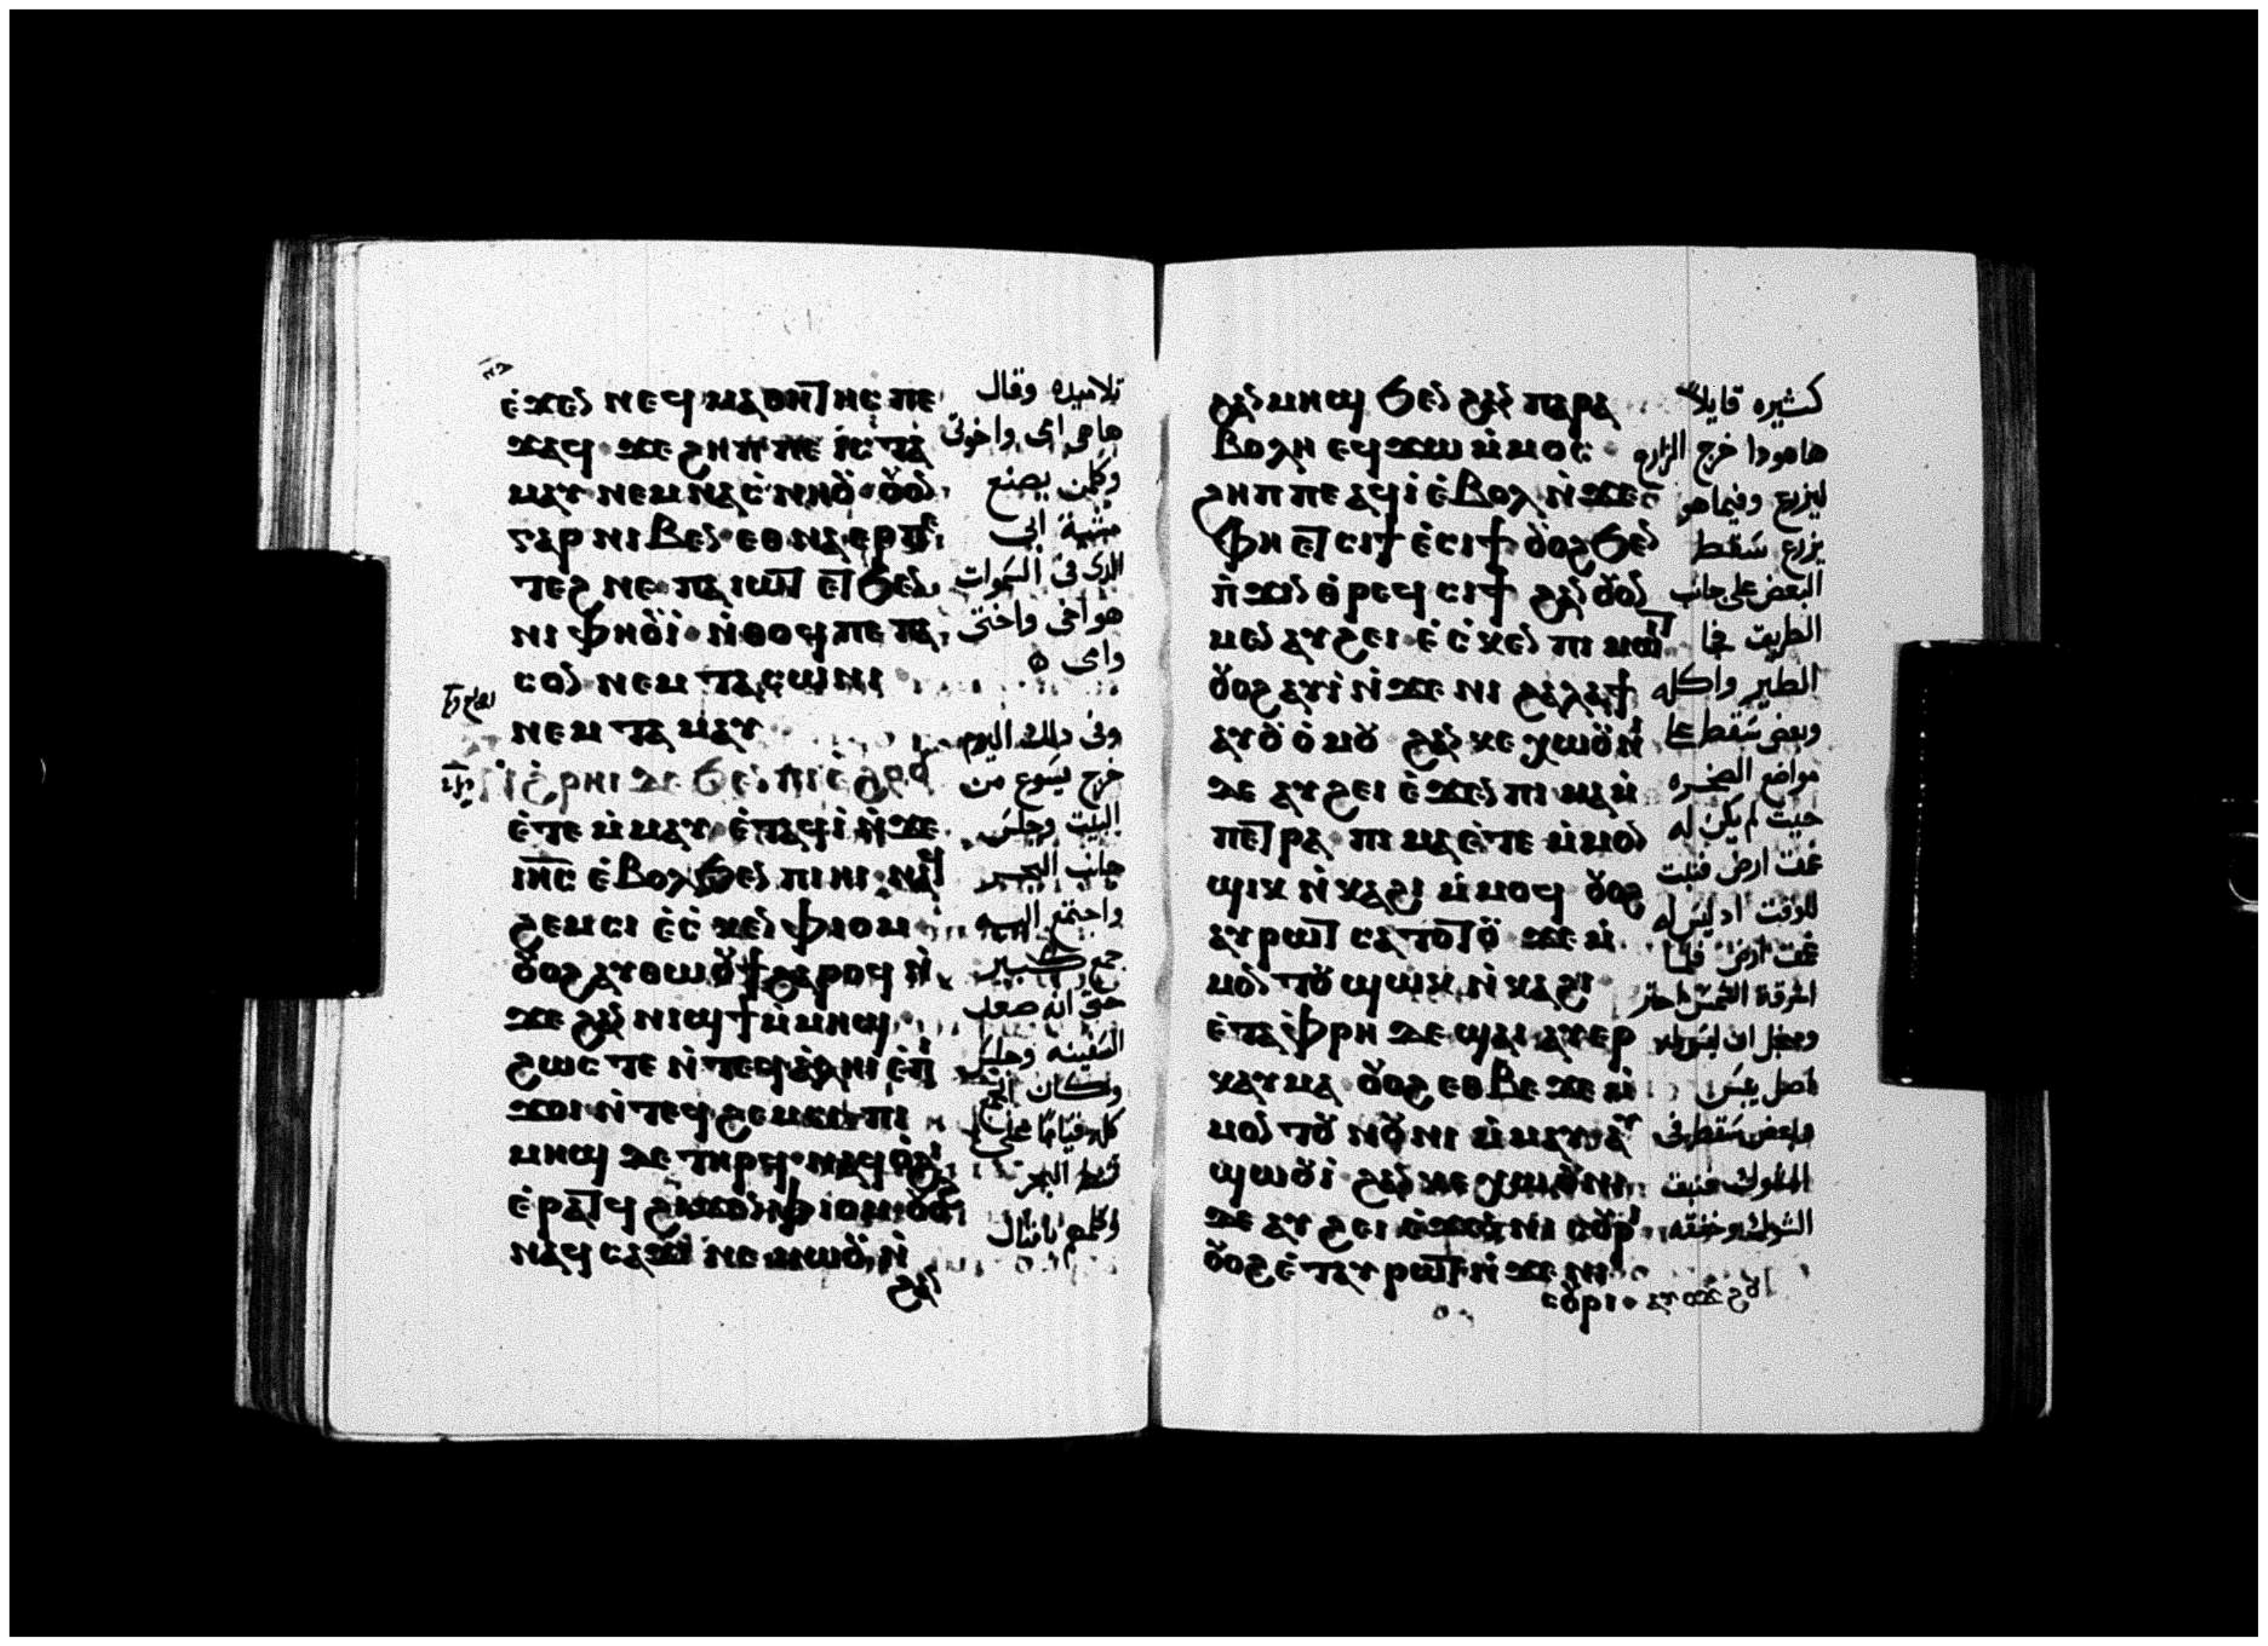 ⲉ̀ϫⲉⲛ ⲛⲉϥⲙⲁⲑⲏⲧⲏⲥ ⲡⲉ
ϫⲁϥ ϫⲉ ϩⲏⲡⲡⲉ ⲓⲥ ⲧⲁ
ⲙⲁⲩ ⲛⲉⲙ ⲛⲁⲥ̀ⲛⲏⲟⲩ ⲟⲩⲟⲛ
ⲅⲁⲣ ⲛⲓⲃⲉⲛ ⲉⲑⲛⲁⲉⲣⲡⲉ
ⲧⲉϩⲛⲉ ⲡⲁⲓⲱⲧ ⲉⲧϧⲉⲛ
ⲛⲓⲫⲏⲟⲩⲓ̀ ⲛ̀ⲑⲟϥ ⲡⲉ ⲡⲁ
ⲥⲟⲛ ⲛⲉⲙ ⲧⲁⲥⲱⲛⲓ
ⲛⲉⲙ ⲧⲁⲙⲁⲩ
ⲛ̀ϩ̀ⲣⲏⲓ ⲇⲉ ϧⲉⲛ ⲡⲓⲉ̀ϩⲟⲟⲩ
ⲉ̀ⲧⲉ ⲙ̀ⲙⲁⲩ ⲉ̀ⲧⲁϥⲓ̀ ⲛ̀ϫⲉ
ⲓⲏⲥ ⲉ̀ⲃⲟⲗ ϧⲉⲛ ⲡⲓⲏⲓ ⲛⲁϥ
ϩⲉⲙⲥⲓ ⲉ̀ⲥ̀ⲕⲉⲛ ⲫⲓⲟⲙ
ⲟⲩⲟϩ ⲁⲩⲑⲱⲟⲩϯ ϩⲁⲣⲟϥ ⲛ̀
ϫⲉ ϩⲁⲛⲛⲓϣϯ ⲙ̀ⲙⲏϣ
ϩⲱⲥⲧⲉ ⲛ̀ⲧⲉϥⲁ̀ⲗⲏⲓ ⲉ̀ⲡ̀
ϫⲟⲓ ⲛ̀ⲧⲉϥϩⲉⲙⲥⲓ ⲡⲓ
ⲙⲏϣ ⲇⲉ ⲧⲏⲣϥ ⲛⲁϥⲟ̀ϩⲓ
ⲉ̀ⲣⲁⲧϥ ϩⲓϫⲉⲛ ⲫⲓⲟⲙ ⲟⲩⲟϩ
ⲛⲁϥⲥⲁϫⲓ ⲛⲉⲙⲱⲟⲩ ⲛ̀
ϩⲁⲛ
تلاميده وقال
هاهي امي واخوتي
وكلمن يصنع
مشية ابي
الدي في السموات
هو اخي واختي
وامي
وفي دلك اليوم
خرج يسوع من
البيت وجلس
جانب البحر
واجتمع اليه
جمع كبير
حتي انه صعد
السفينه وجلس
وكان الجمع
كله قيامًا علي
شط البحر
وكلمهم بامثال
ϩⲁⲛⲙⲏϣ ϧⲉⲛ ϩⲁⲛⲡⲁⲣⲁ
ⲃⲟⲗⲏ ⲉϥϫⲱ ⲙ̀ⲙⲟⲥ
ϩⲏⲡⲡⲉ ⲁϥⲓ̀ ⲉ̀ⲃⲟⲗ ⲛ̀ϫⲉ
ⲫⲏⲉⲧⲥⲓϯ ⲉ̀ⲥⲓϯ ⲟⲩⲟϩ ϧⲉⲛ
ⲡ̀ϫⲓⲛⲑ̀ⲣⲉϥⲥⲓϯ ϩⲁⲛⲟⲩⲟⲛ
ⲙⲉⲛ ⲁⲩϩⲉⲓ ⲉ̀ⲥ̀ⲕⲉⲛ ⲡⲓⲙⲱⲓⲧ
ⲟⲩⲟϩ ⲁⲩⲓ̀ ⲛ̀ϫⲉ ⲛⲓϩⲁⲗⲁϯ
ⲁⲩⲟⲩⲟ̀ⲙⲟⲩ ϩⲁⲛⲕⲉⲭⲱⲟⲩⲛⲓ
ⲇⲉ ⲁⲩϩⲉⲓ ⲉ̀ϫⲉⲛ ⲡⲓⲙⲁⲙ̀
ⲡⲉⲧⲣⲁ ⲡⲓⲙⲁ ⲉ̀ⲧⲉ ⲙ̀ⲙⲟⲛ
ϣⲓⲕ ⲛ̀ⲕⲁϩⲓ ⲙ̀ⲙⲟϥ ⲟⲩⲟϩ
ⲁⲩⲣⲱⲧ ⲥⲁⲧⲟⲧⲟⲩ ϫⲉ ⲙ̀
ⲙⲟⲛⲧⲟⲩ ϣⲱⲕ ⲛ̀ⲕⲁϩⲓ
ⲉ̀ⲧⲁⲫⲣⲏ ⲇⲉ ϣⲁⲓ ⲁⲩⲉⲣ
ⲕⲁⲩⲙⲁ ⲟⲩⲟϩ ⲉⲑⲃⲉ ϫⲉ ⲙ̀
ⲙⲟⲛⲧⲟⲩ ⲛⲟⲩⲛⲓ ⲙ̀ⲙⲁⲩ ⲁⲩ
ϣⲱⲟⲩⲓ̀ ϩⲁⲛⲕⲉⲭⲱⲟⲩⲛⲓ
ⲇⲉ ⲁⲩϩⲉⲓ ⲉ̀ϫⲉⲛ ⲛⲓⲥⲟⲩⲣⲓ
ⲟⲩⲟϩ ⲉ̀ⲧⲁⲩⲣⲱⲧ ⲛ̀ϫⲉ ⲛⲓ
ⲥⲟⲩⲣⲓ
كثيره قايلاً
هاهودا خرج الزارع
ليزرع وفيما هو
يزرع سقط
البعض على جانب
الطريق فجا
الطير واكله
وبعض سقط علي
مواضع الصخره
حيت لم يكن له
عمق ارض فنبت
للوقت اد ليس له
عمق ارض فلما
اشرقة الشمس احتر
اصل يبس
وبعض سقط في
الشوك فنبت
الشوك وخنقه